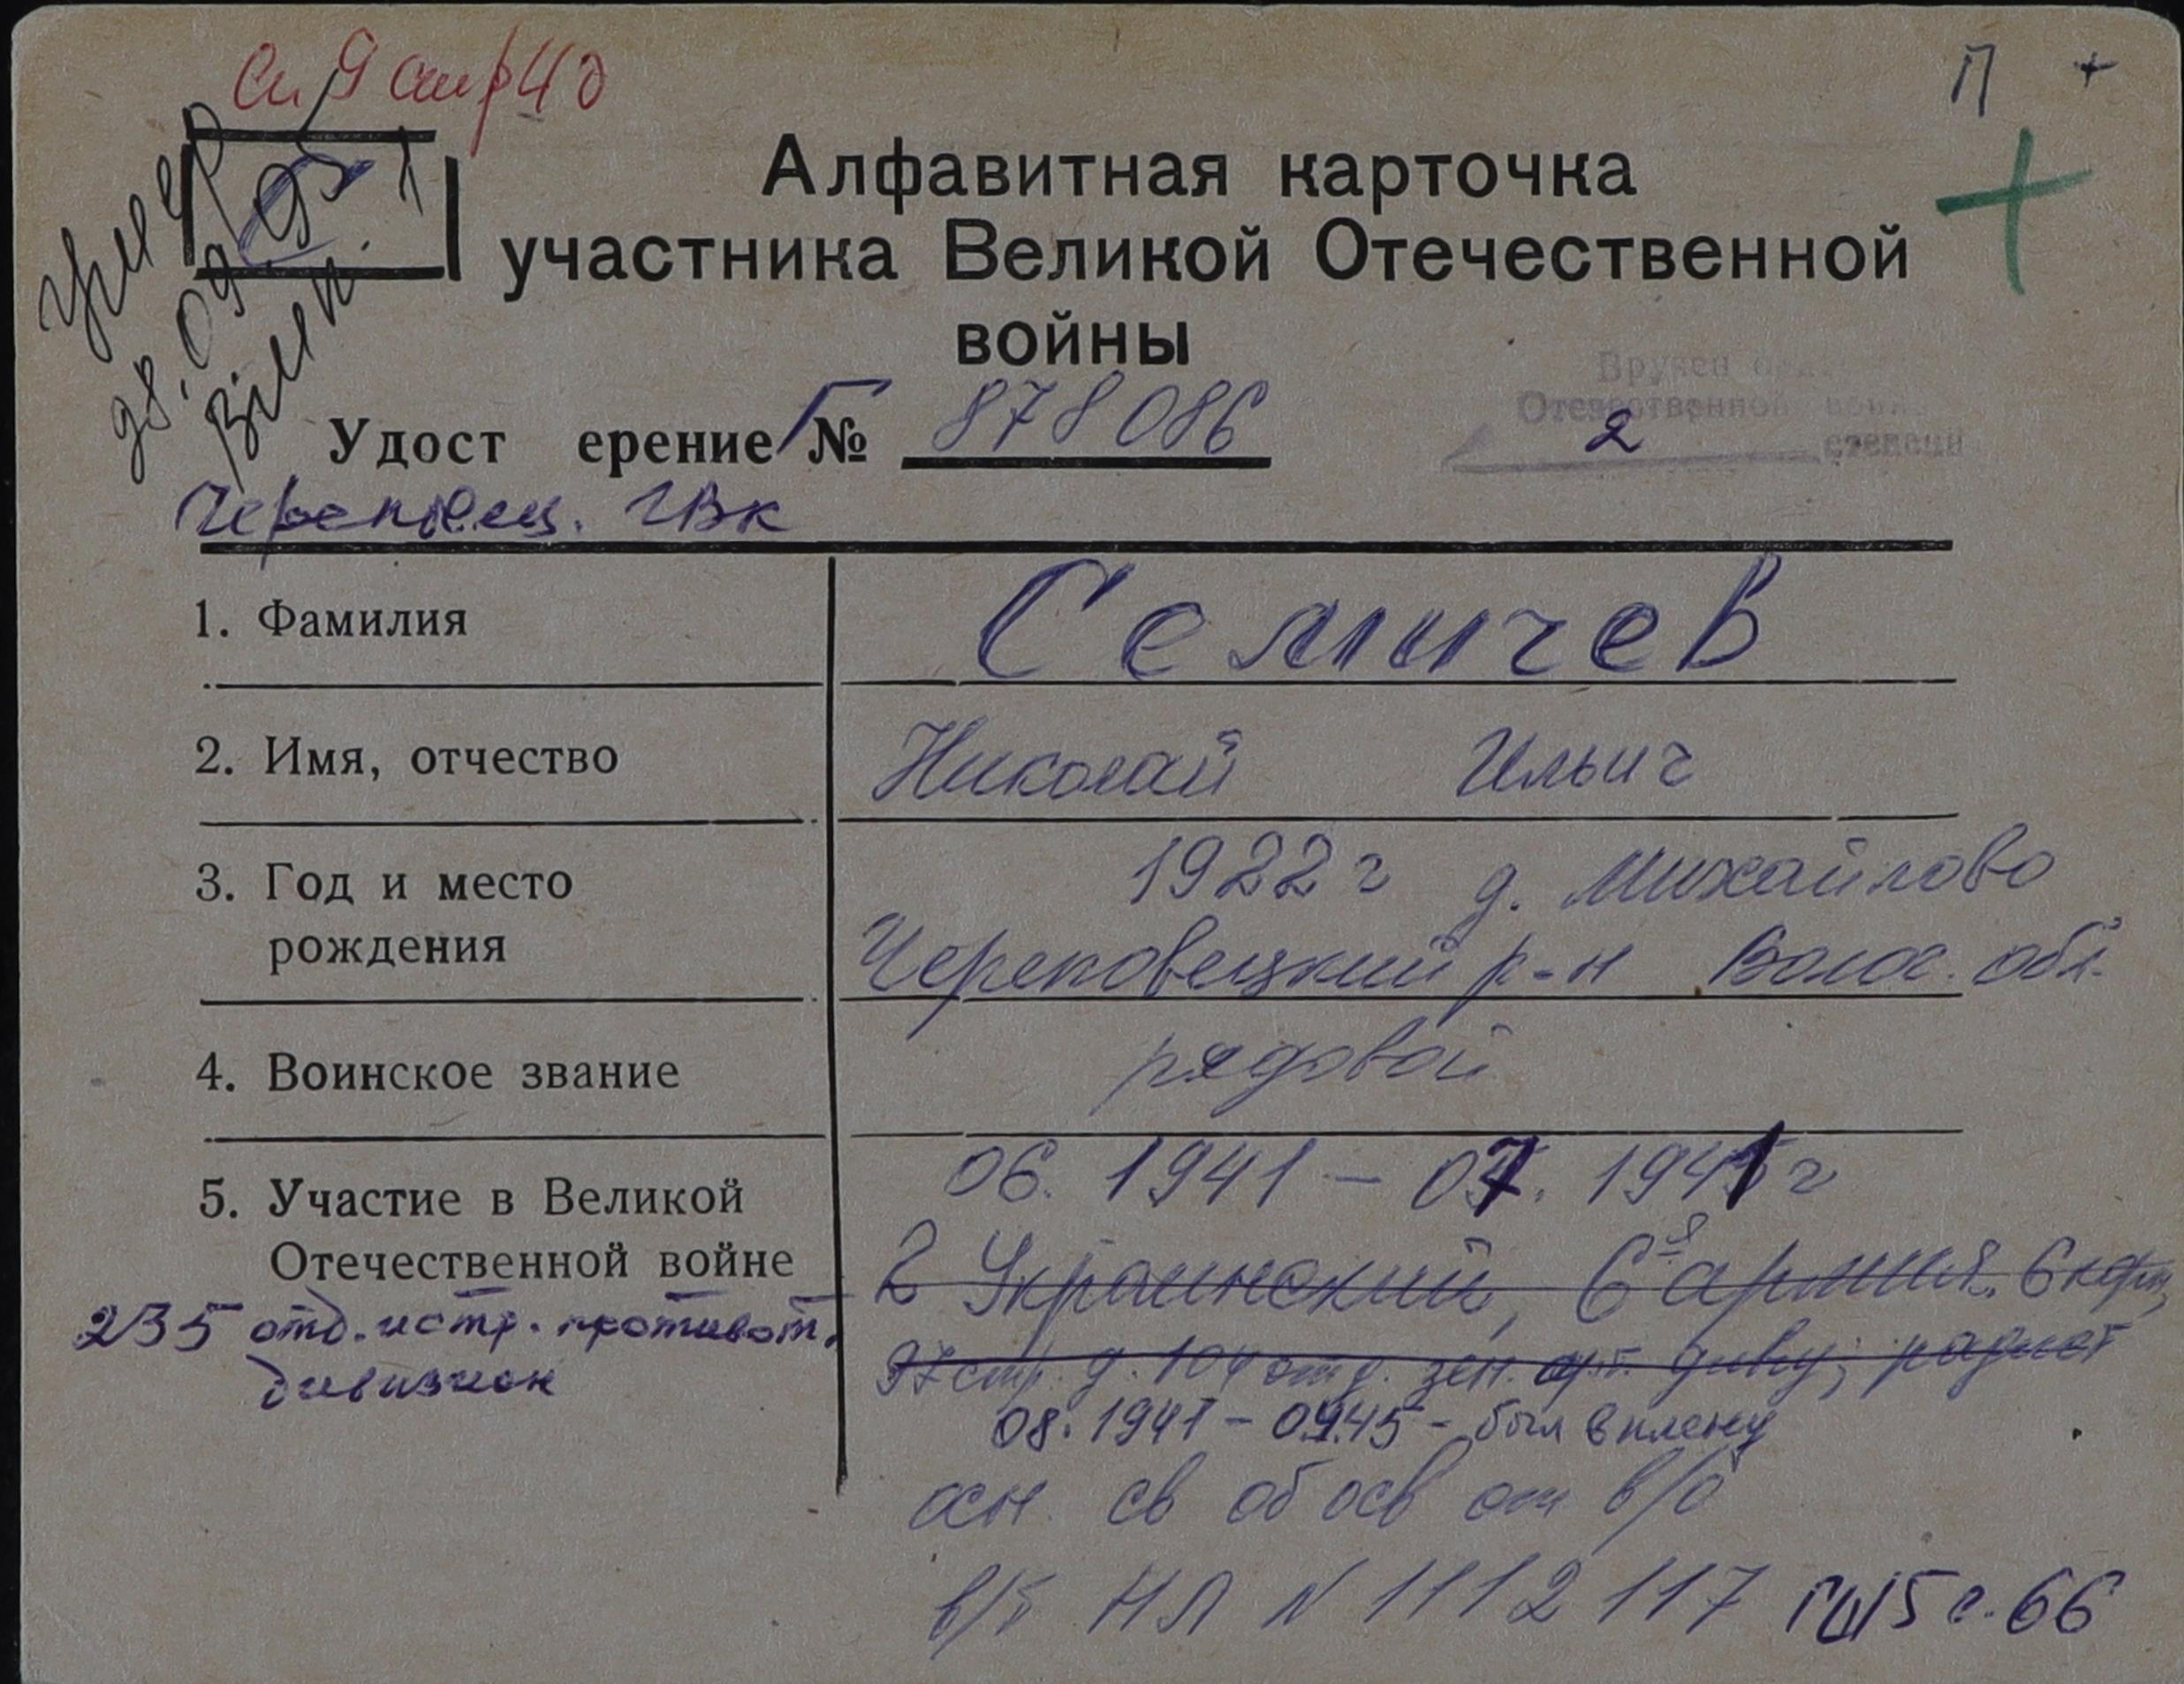 Сп 9 стр 40
П +
умер
28.09.95 г
Вып.
Алфавитная карточка
участника Великой Отечественной
войны
Удост ерение Г № 878086
Вручен
Отечественной войн
2 степени
Череповец. ГВК
1. Фамилия Семичев
2. Имя, отчество Николай Ильич
3. Год и место 1922 г д. Михайлово
рождения Череповецкий р-н Волог. обл.
4. Воинское звание рядовой
5. Участие в Великой 06. 1941 – 07. 1941 г
Отечественной войне 2 Украинский, 6я армия.
235 отд. истр. противот. 97 стр. д. 104 отд. зен. арт. див.; радист
дивизион
08. 1941 – 09.45 – был в плену
осн. св об осв от в/о
в/б НЛ N 1112117 ГШ5 с. 66